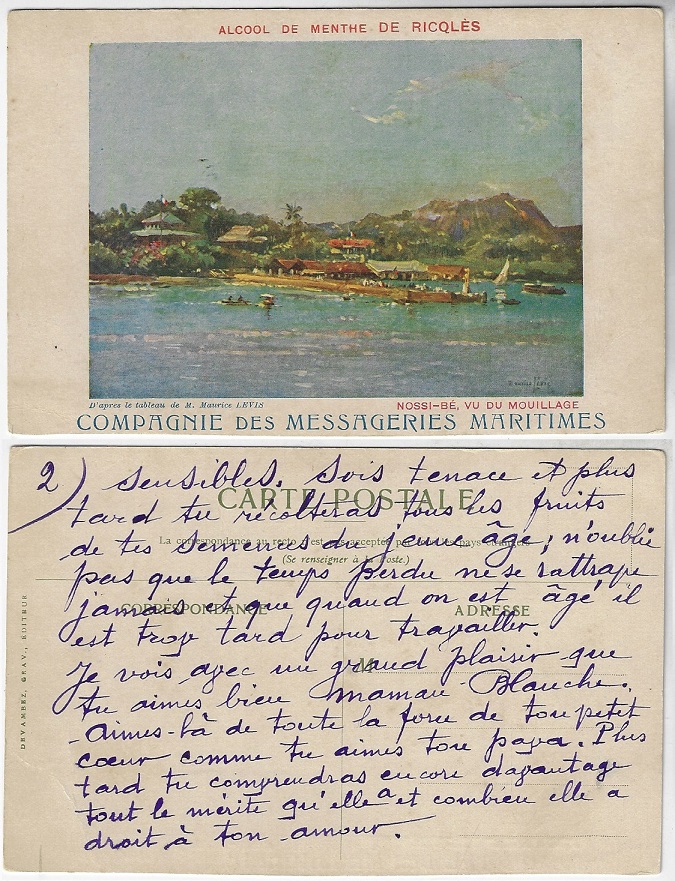 ALCOOL DE MENTHE DE RICQLÈS
D'apres le tableau de M. Maurice LEVIS
NOSSI-BÉ, VU DU MOUILLAGE
COMPAGNIE DES MESSAGERIES MARITIMES
2) sensibles. Sois tenace et plus
CARTE POSTALE
tard tu récolteras tous les fruits
La correspondance au recto n'est pas acceptée par tous les pays
de tes semences du jeune âge; n'oublie
(Se renseigner à la Poste.)
pas que le temps perdu ne se rattrape
jamais et que quand on est âgé il
CORRESPONDANCE
ADRESSE
est trop tard pour travailler.
Je vois avec un grand plaisir que
M
tu aimes bien maman Blanche.
Aimes-là de toute la force de ton petit
coeur comme tu aimes ton papa. Plus
tard tu comprendras encore davantage
tout le mérite qu'elle a et combien elle a
droit à ton amour.
DEVAMBEZ, GRAV., ÉDITEUR